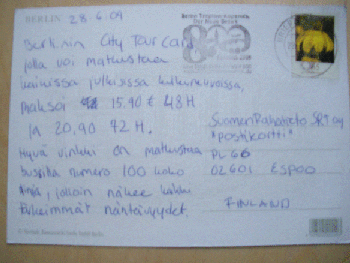 BERLIN
28.6.09
Berliinin City Tour Card
jolla voi matkustaa
kaikissa julkisissa kulkuneuvoissa,
maksoi 15,90 € 48H
ja 20,90 72H.
Hyvä vinkki on matkustaa
bussilla numero 100 koko
linja, jolloin näkee kaikki
tärkeimmät nähtävyydet.
800
Suomen Rahatieto SRT oy
"Postikortti"
PL 66
02601 ESPOO
FINLAND